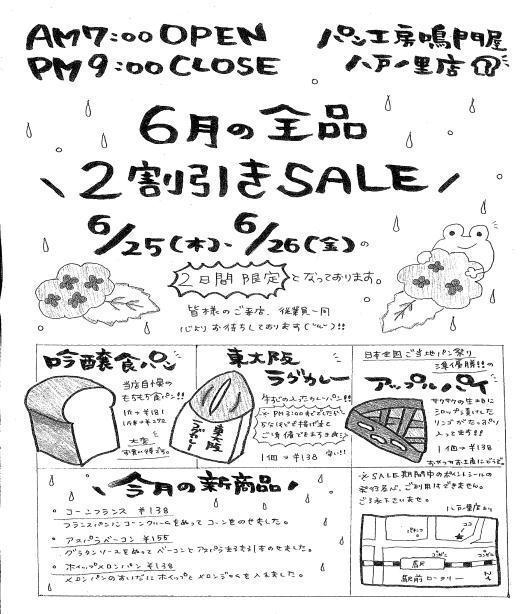 AM7:00 OPEN
PM9:00 CLOSE
パン工房鳴門屋
八戸ノ里店
6月の全品
2割引きSALE
6/25(木)、6/26(金)の
2日間限定となっております。
皆様のご来店、従業員一同
心よりお待ちしております(^ω^)!!
吟醸食パン
当店自慢の
もちもち食パン!!
1斤→¥181
東大阪
ラグカレー
牛すじの入ったカレーパン!!
1個→¥138
東大阪
ラグカレー
日本全国ご当地パン祭り
準優勝!!の
アップルパイ
サクサクの生地に
シロップ漬けした
リンゴがたっぷり
入ってます!!
1個→¥138
おやつやお土産にどうぞ。
今月の新商品
・コーンフランス ¥138
フランスパンにコーンクリームをぬってコーンをのせました。
・アスパラベーコン ¥155
グラタンソースをぬってベーコンとアスパラまるまる1本のせました。
・ホイップメロンパン ¥138
メロンパンのあいだにホイップとメロンジャムを入れました。
※SALE期間中のポイントシールの
発行及び、ご利用はできません。
ご了承下さいませ。
八戸ノ里店より
パチンコ
ココ
コンビニ
コンビニ
駅
駅前ロータリー